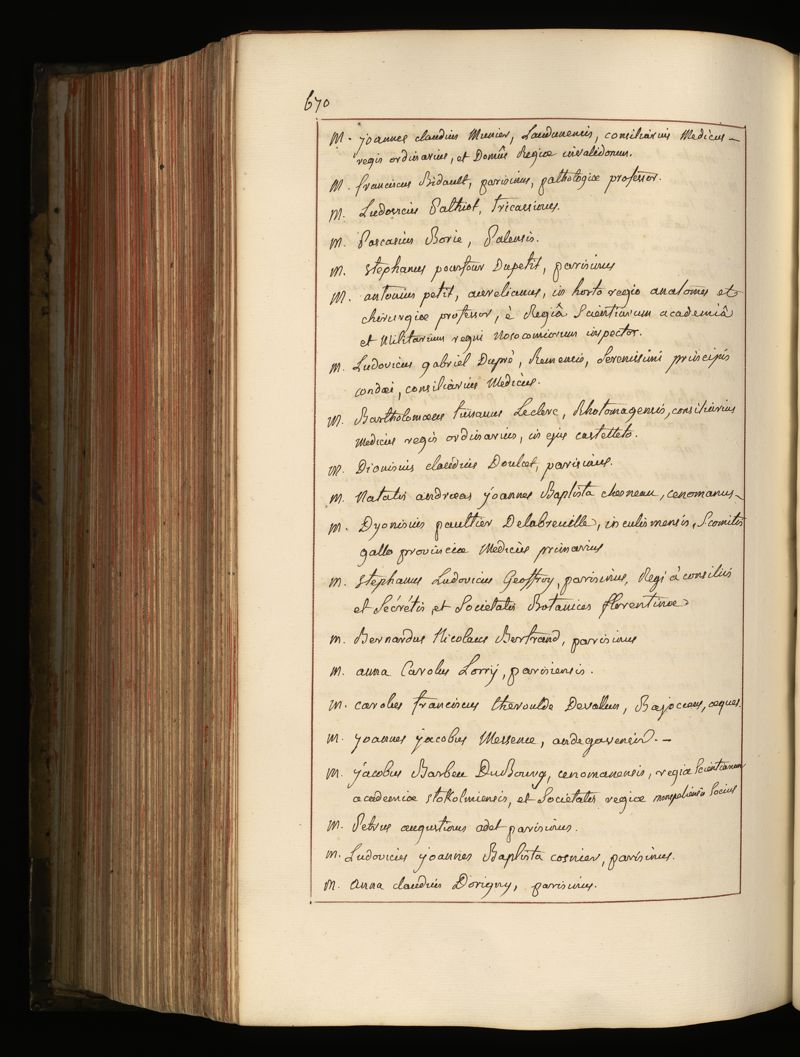 670
M. joannes claudius Munier, Laudunensis, consiliarius Medicus
regis ordinarius, et Domûs Regiæ invalidorum.
M. franciscus Bidault, parisinus, pathologiæ professor.
M. Ludovicus Pathiot, tricassinus.
M. Pascasius Borie, Palensis.
M. Stephanus pourfour Dupetit, parisinus
M. antonius petit, aurelianus, in horto regio anatomes et
chirurgiæ professor, è Regiâ Scientiarum academiâ
et Militarium regni Nosocomiorum inspector.
M. Ludovicus gabriel Dupré, Remensis, Serenissimi principis
condæi, consiliarius Medicus.
M. Bartholomæus tussanus Leclerc, Rhotomagensis, consiliarius
Medicus regis ordinarius, in ejus castelleto.
M. Dionisius claudius Doulcet, parisinus.
M. Natalis andreas joannes Baptista chesneau, cenomanus
M. Dyonisius paultier Delabreuille, inculismensis, Scomitis
gallo provinciæ Medicus primarius
M. Stephanus Ludovicus Geoffroy, parisinus, Regi à consiliis
et Sécrétis, et Societatis Botanices florentinæ
M. Bernardus Nicolaus Bertrand, parisinus
M. anna Carolus Lorry, parisiensis.
M. carolus franciscus theroulde Devallun, Bajoceus, æques.
M. joannes jacobus Messence, andegavensis.
M. jacobus Barbeu DuBourg, cenomanensis, regiæ Scientiarum
academiæ stokolmiensis, et Societatis regiæ monspeliensis Socius
M. Petrus augustinus adet parisinus.
M. Ludovicus joannes Baptista cosnier, parisinus.
M. anna claudius Dorigny, parisinus.